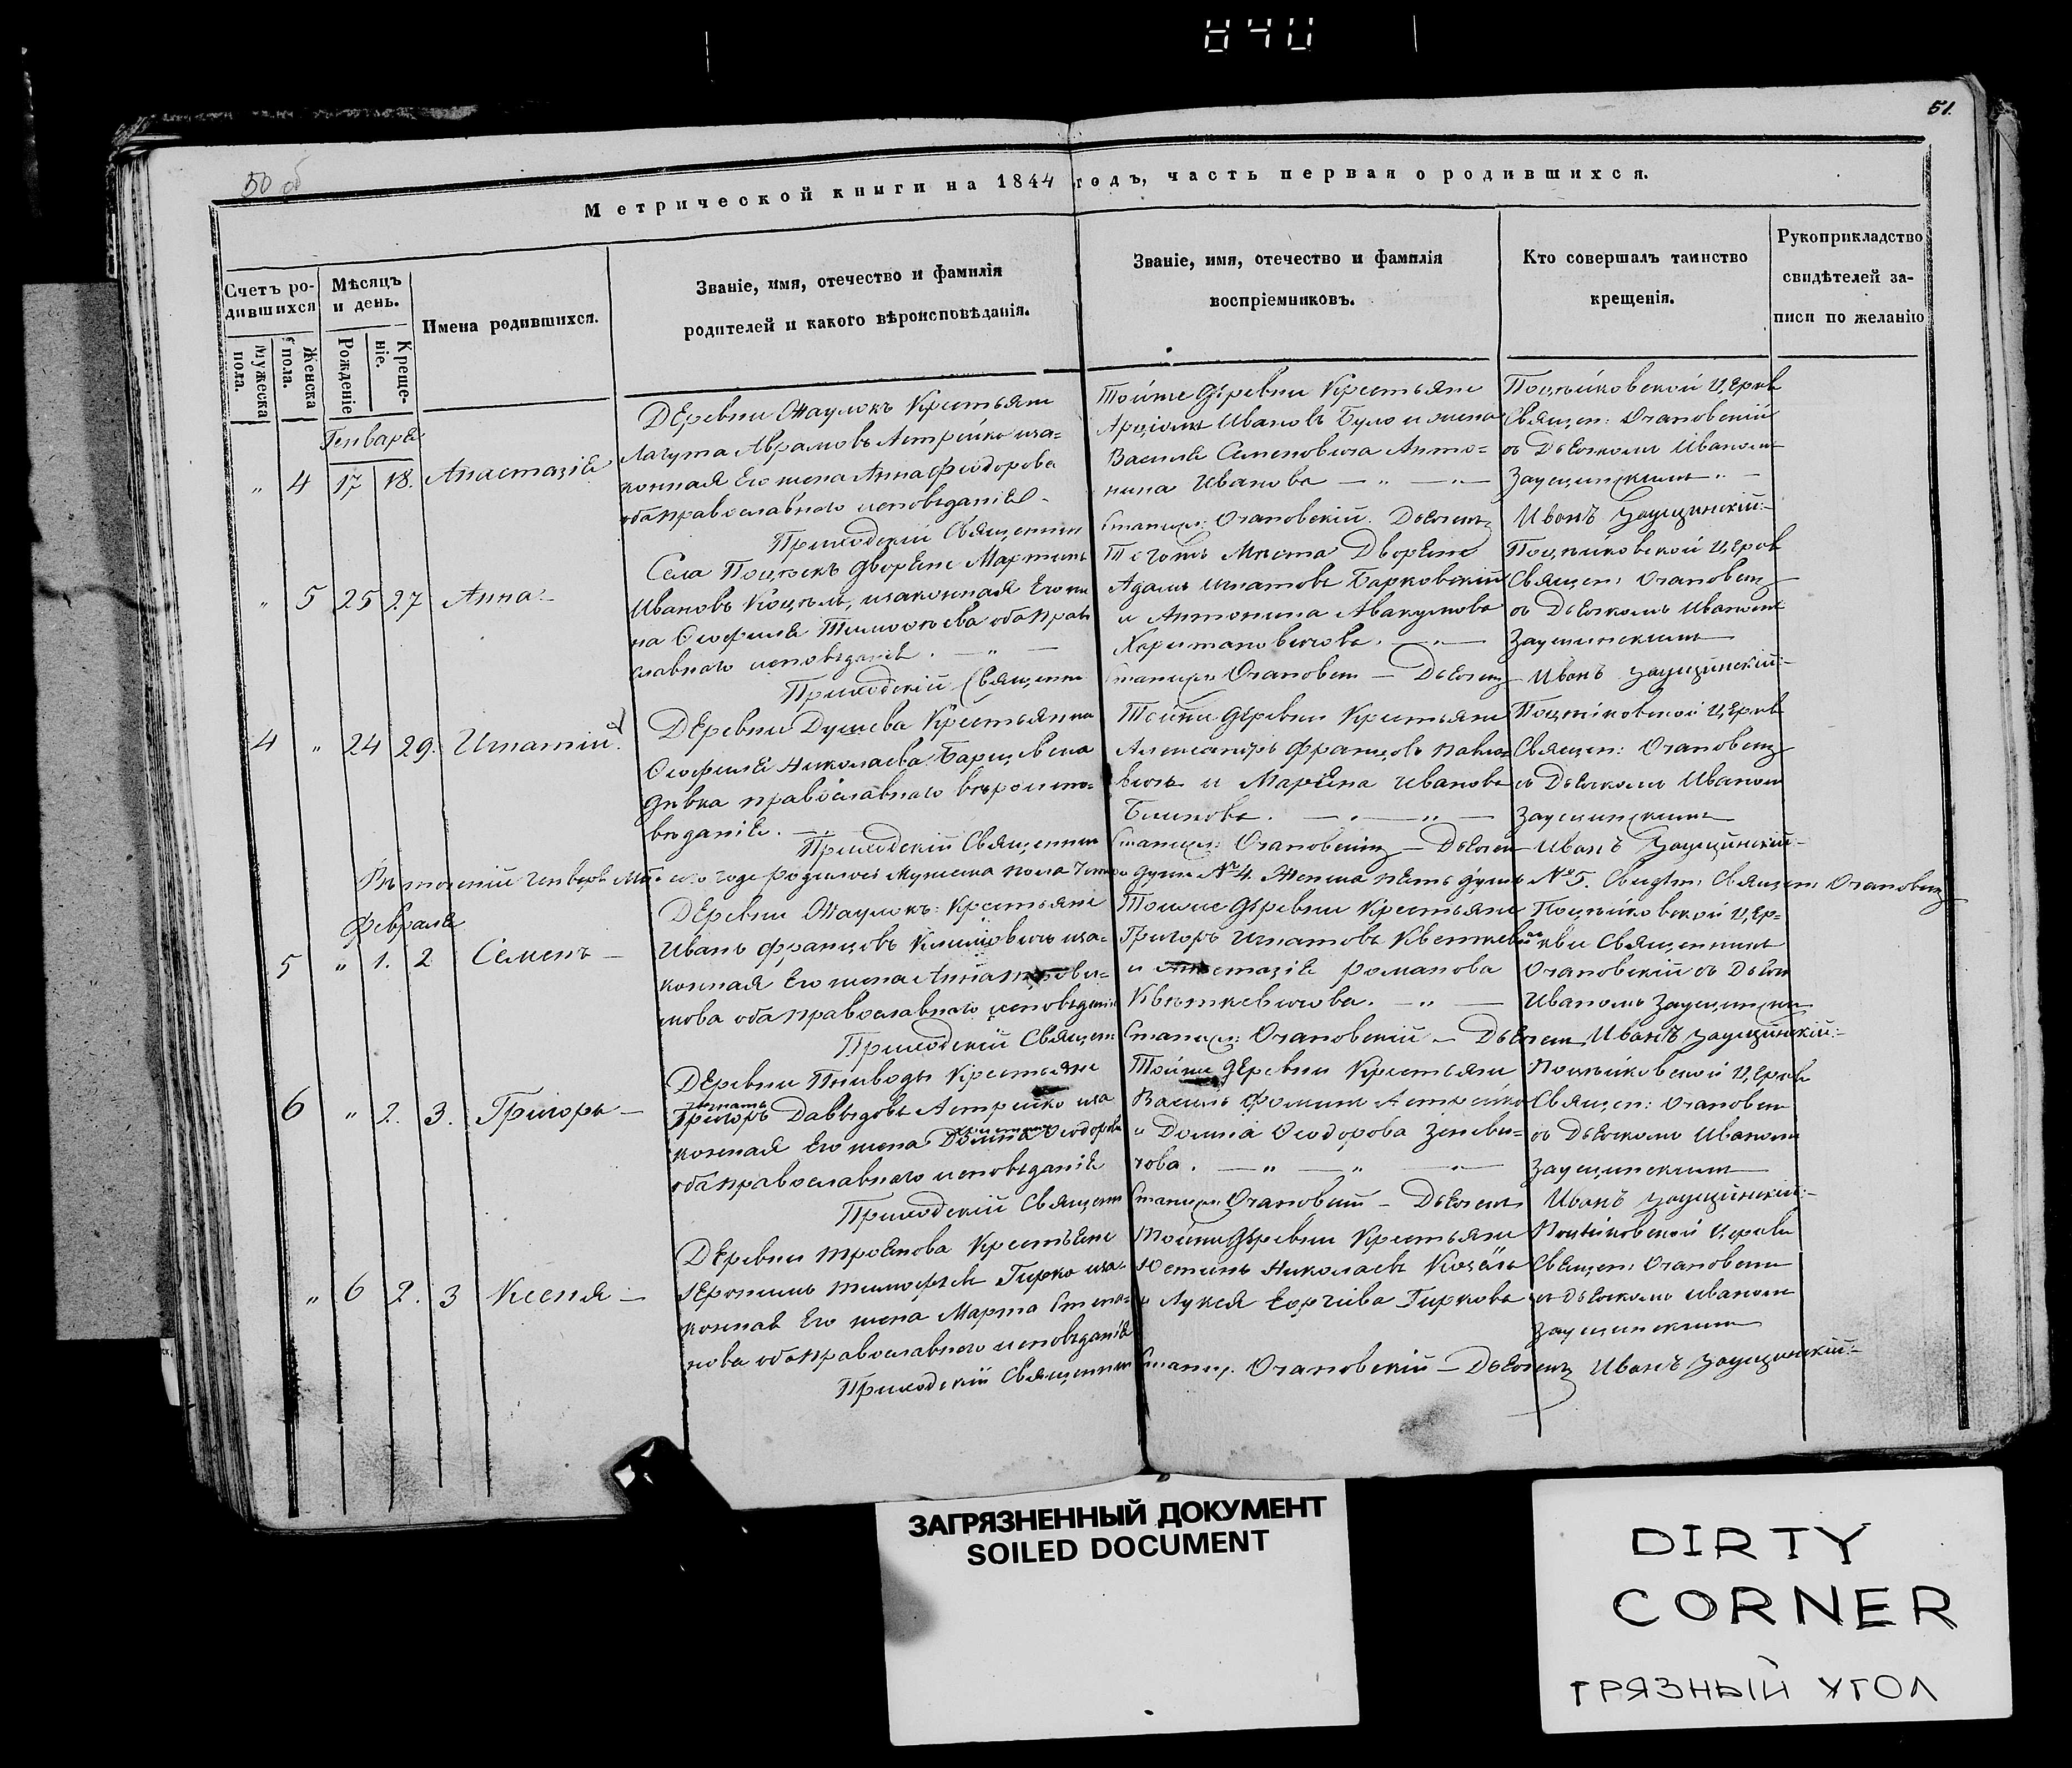 840
51.
50 об
Метрической книги на 1844 годъ, часть первая о родившихся.
Счетъ ро-
дившихся
Мужеска
пола.
Женска
пола.
Мѣсяцъ
и день.
Рожденіе
Креще-
ніе.
Имена родившихся.
Званіе, имя, отечество и фамилія
родителей и какого вѣроисповѣданія.
Званіе, имя, отечество и фамилія
воспріемниковъ.
Кто совершалъ таинство
крещенія.
Рукоприкладство
свидѣтелей за-
писи по желанію
Генваря
" 4 17 18. Анастазія
Деревни Крестьяне
Аврамовъ Астрейко иза-
конная Его жена Анна Феодорова
оба православнаго исповѣданія
Приходскій Священник
Тойже деревни Крестьяне
Ивановъ Було и жена
Василя Семеновича Анто-
нина Иванова — " — " —
Станисл: Очановскій. Дьячекъ
Поцѣйковской Церкв
Священ: Очановскій
съ Дьячкомъ Иваномъ
Заусцинскимъ " —
Иванъ Заусцинскій
" 5 25 27 Анна —
Села Поцѣекъ дворяне Мартинъ
Ивановъ Коцѣлъ, изаконная Его же
на Феофиля Тимофѣева оба Прав
славнаго исповѣданія. — " —
Приходскій Священни
Тогожъ Мѣста Дворяне
Адамъ Игнатовъ Барковскій
и Антонина Авакумова
Харитановичова. — " —
Станисл: Очановск — Дьячекъ
Поцѣйковской Церкв
Священ: Очановск
съ Дьячкомъ Иваномъ
Заусцинскимъ
Иванъ Заусцинскій
4 " 24 29. Игнатій
Деревни Душева Крестьянка
Феофиля Николаева
дѣвка православнаго вѣроиспо-
вѣданія. —
Приходскій Священник
Тойже деревни Крестьяне
Александръ Францовъ Павло-
вичъ и Маряна Иванова
— " —
Станисл: Очановскій — Дьячек
Поцѣйковской Церкв
Священ: Очановск
съ Дьячкомъ Иваном
Заусцинскимъ
Иванъ Заусцинскій
Въ теченіи Генваря Мца сего года родилось Мужеска пола душъ № 4. Женска пять душъ № 5. Свидѣт: Священ: Очановск
Февраля
5 " 1. 2 Семенъ —
Деревни Крестьяне
Иванъ Францовъ Климовичъ иза-
конная Его жена Анна
мова оба православнаго исповѣданія
Приходскій Священ
Тоиже деревни Крестьяне
Григоръ Игнатовъ
и Анастазія Романова
Квяткевичова. — " —
Станисл: Очановскій — Дьячек
Поцѣйковской Цер-
кви Священникъ
Очановскій съ Дьячк
Иваномъ Заусцински
Иванъ Заусцинскій
6 " 2. 3. Григоры —
Деревни Пниводы Крестьяне
Игнатъ
Григоръ Давыдовъ Астрейко иза
конная Его жена Домна Феодорова
оба православнаго исповѣданія
Приходскій Священ
Тойже деревни Крестьяне
Василь Фоминъ Астрейко
и Домна Феодорова Зеневи-
чова. — " — " —
Станисл: Очановскій — Дьячекъ
Поцѣйковской Церкв
Священ: Очановск
съ Дьячкомъ Иваномъ
Заусцинскимъ
Иванъ Заусцинскій
" 6 2. 3 Ксенія —
Деревни Троянова Крестьяне
Іеронимъ Тимофѣевъ Гирко иза
конная Его жена Марта Степа-
нова оба православнаго исповѣданія
Приходскій Священник
Тойже деревни Крестьяне
Юстинъ Николаевъ Козелъ
и Лукея Еоргіева Гиркова
Станисл. Очановскій — Дьячекъ
Поцѣйковской Церкви
Священ: Очановск
съ Дьячкомъ Иваном
Заусцинскимъ
Иванъ Заусцинскій
ЗАГРЯЗНЕННЫЙ ДОКУМЕНТ
SOILED DOCUMENT
DIRTY
CORNER
ГРЯЗНЫЙ УГОЛ